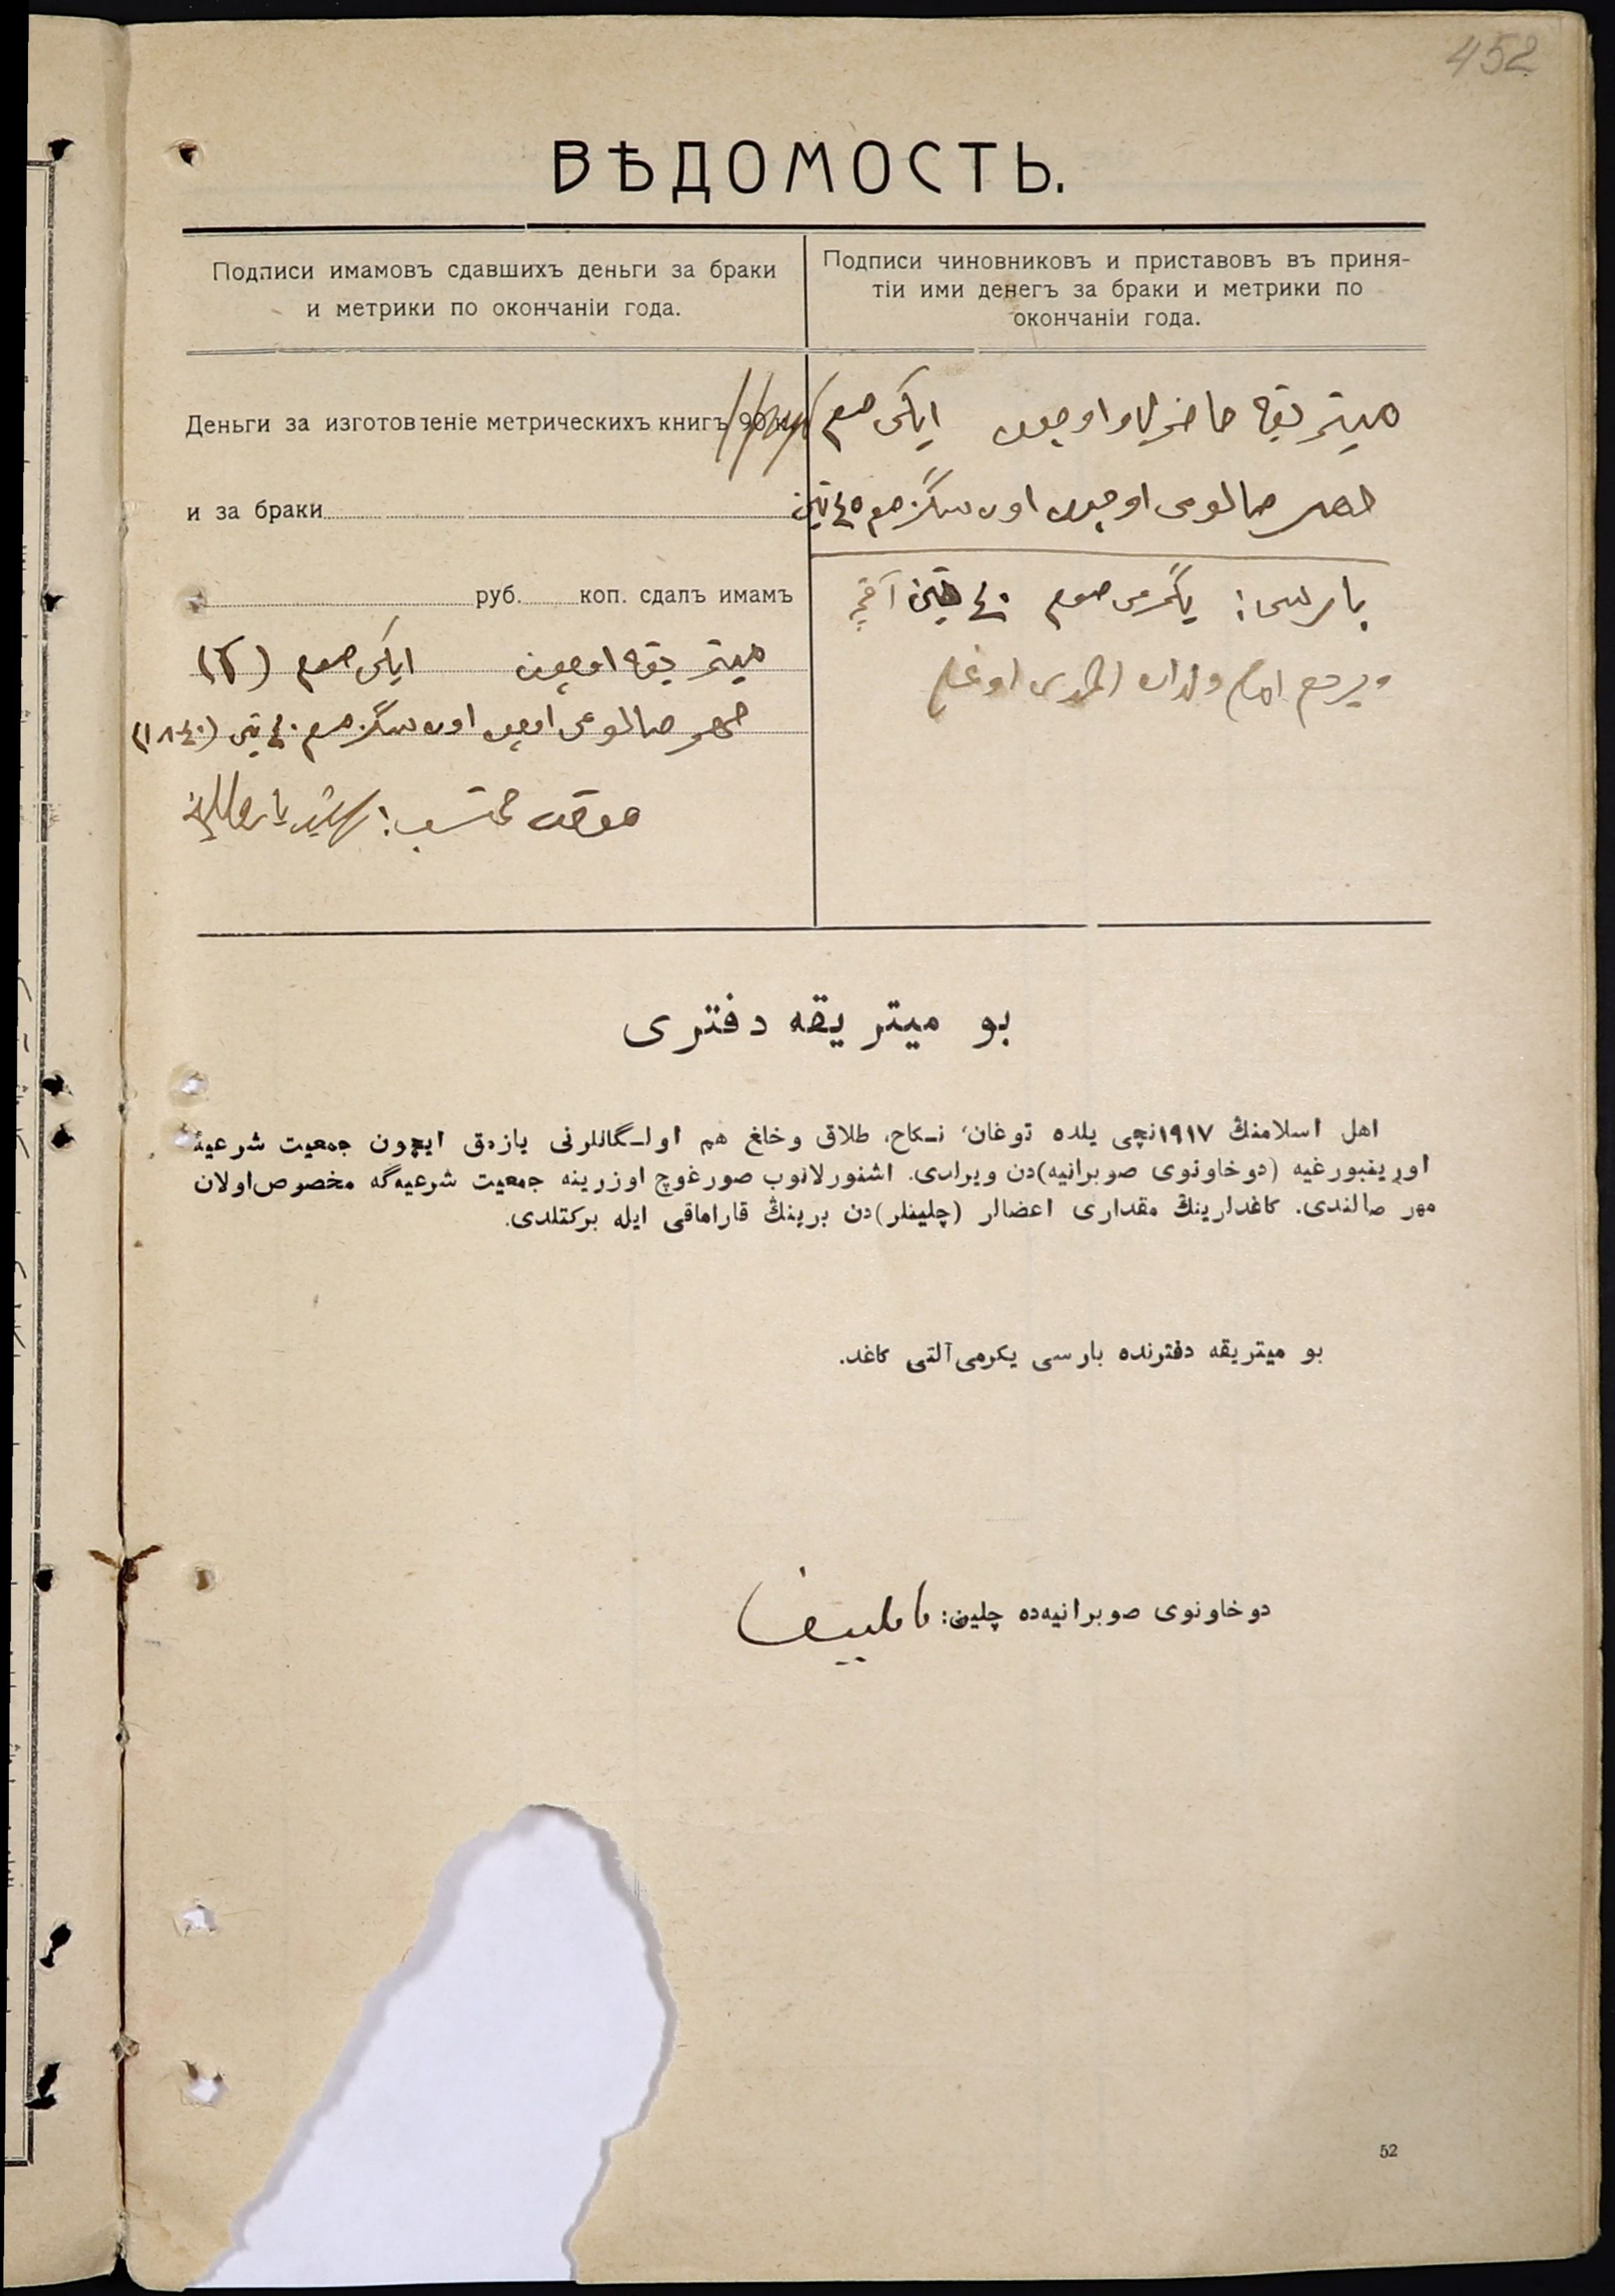 452
ВѢДОМОСТЬ.
Подписи имамовъ сдавшихъ деньги за браки
и метрики по окончаніи года.
Подписи чиновниковъ и приставовъ въ приня-
тіи ими денегъ за браки и метрики по
окончаніи года.
Деньги за изготовленіе метрическихъ книгъ 90
и за браки
руб. коп. сдалъ имамъ
ميتريقه اوچون ايكی صوم (٢)
مهر صالوعی اوچون اون سگز صوم ٤٠ تين (١٨٤٠)
موقت محتسب:
ميتريقه حاضرلاو اوچون ايكی صوم
مهر صالوعی اوچون اون سگز صوم ٤٥ تين
بارسی: يگرمی صوم ٤٠ تين آقچه
ويردم امام
بو ميتريقه دفتری
اهل اسلامنڭ ١٩١٧نچی يلده توغان، نـكاح، طلاق وخلغ هم اولـگانلرنی يازمق ايچون جمعيت شرعيهٔ
اورينبورغيه (دوخاونوی صوبرانيه)دن ويرلدی. اشنورلانوب صورغوچ اوزرينه جمعيت شرعيه‌گه مخصوص اولان
مهر صالندی. كاغدلرينڭ مقداری اعضالر (چلينلر)دن برينڭ قاراماقی ايله بركتلدی.
بو ميتريقه دفترنده بارسی يكرمی آلتی كاغد.
دوخاونوی صوبرانيه‌ده چلين:
52